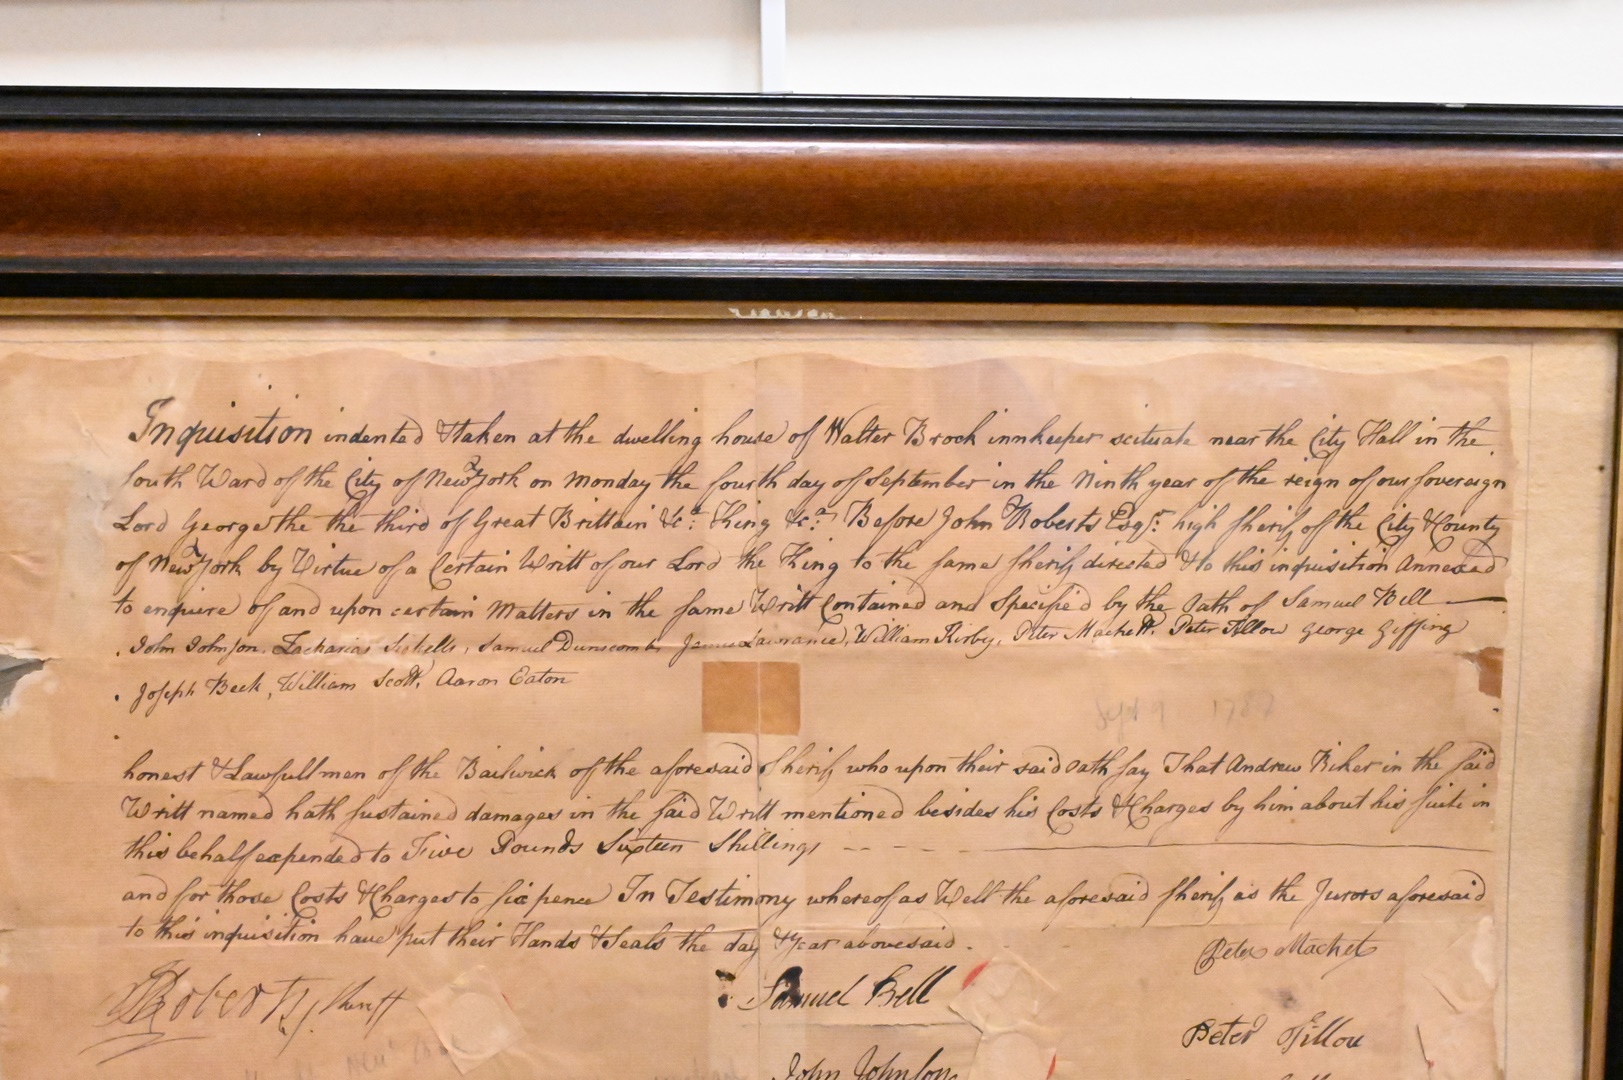 Inquisition indented & taken at the dwelling house of Walter Brock innkeeper scituate near the City Hall in the
South Ward of the City of New York on Monday the fourth day of September in the Ninth year of the reign of our sovereign
Lord George the the third of Great Brittain &c.a King &c.a Before John Roberts Esqr. high sherif of the City & County
of New York by Virtue of a Certain Writt of our Lord the King to the same sherif directed & to this inquisition Annexed
to enquiere of and upon certain Matters in the same Writt Contained and Specified by the Oath of Samuel Bell
John Johnson, Zacharias Sickells, Samuel Dunscomb, James Lawrance, William Kirby, Peter Mackett, Peter Fillow George Giffing
Joseph Beek, William Scott, Aaron Eaton
Sept 9 1787
honest & Lawfull men of the Bailwick of the aforesaid Sherif, who upon their said oath say That Andrew Riker in the said
Writt named hath sustained damages in the said Writt mentioned besides his Costs & Charges by him about his suite in
this behalf expended to Five Pounds Sixteen Shillings
and for those Costs & Charges to six pence In Testimony whereof as Well the aforesaid sherif as the Jurors aforesaid
to this inquisition have put their Hands & Seals the day & year abovesaid.
Peter Macket
Roberts Sheriff
Samuel Bell
Peter Fillou
John Johnson